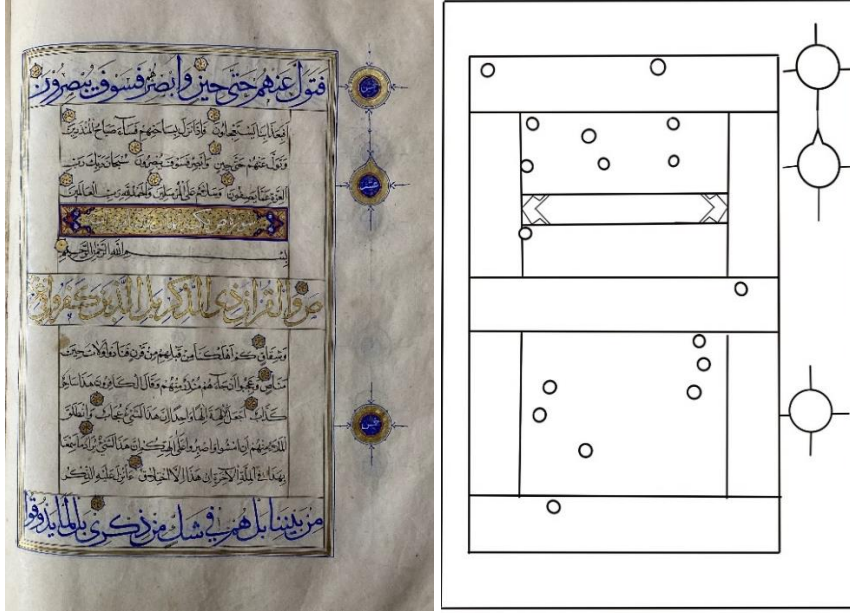 فتول عنهم حتى حين وأبصرهم فسوف يبصرون
أفبعذابنا يستعجلون فإذا نزل بساحتهم فساء صباح المنذرين
وتول عنهم حتى حين وأبصر فسوف يبصرون سبحان ربك رب
العزة عما يصفون وسلام على المرسلين والحمد لله رب العالمين
بسم الله الرحمن الرحيم
ص والقرآن ذي الذكر بل الذين كفروا في
وشقاق كم أهلكنا من قبلهم من قرن فنادوا ولات حين
مناص وعجبوا أن جاءهم منذر منهم وقال الكافرون هذا ساحر
كذاب أجعل الآلهة إلها واحدا إن هذا لشيء عجاب وانطلق
الملأ منهم أن امشوا واصبروا على آلهتكم إن هذا لشيء يراد ما سمعنا
بهذا في الملة الآخرة إن هذا إلا اختلاق أأنزل عليه الذكر
من بيننا بل هم في شك من ذكري بل لما يذوقوا